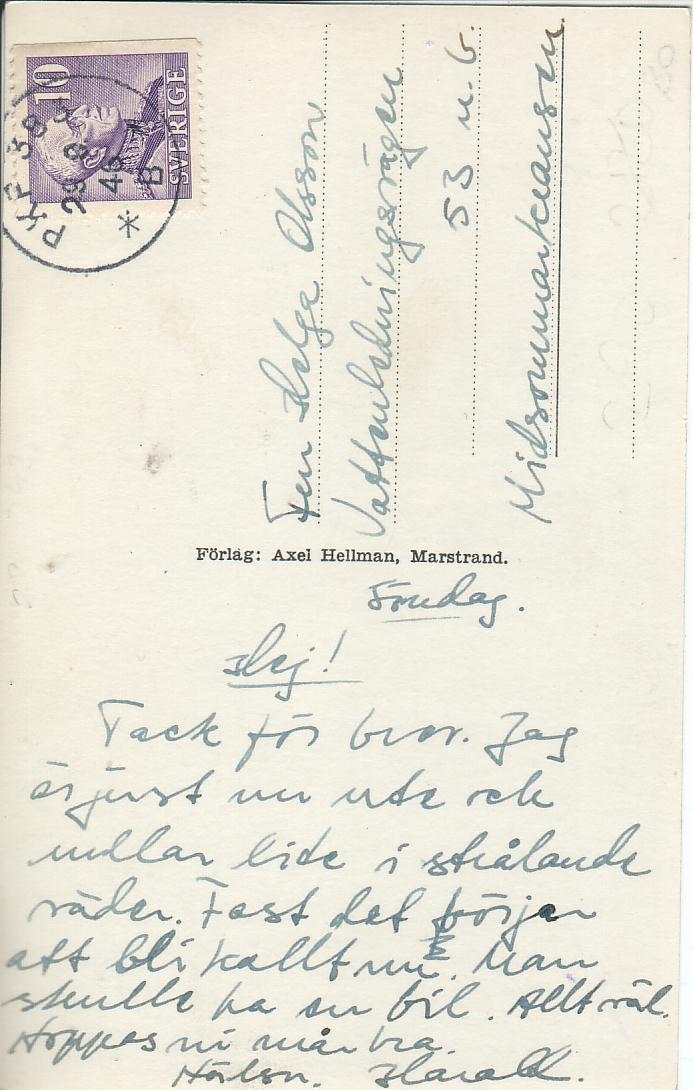 10
SVERIGE
PKP 38
29 8 43
46
B
Fru Helga Olsson
Vattenledningsvägen
53 n.b.
Midsommarkransen
Förlag: Axel Hellman, Marstrand.
Söndag.
Hej!
Tack för brev. Jag
är just nu ute och
rullar lite i strålande
väder. Fast det börjar
att bli kallt nu. Man
skulle ha en bil. Allt väl.
Hoppas ni mår bra.
Hälsn. Harald.